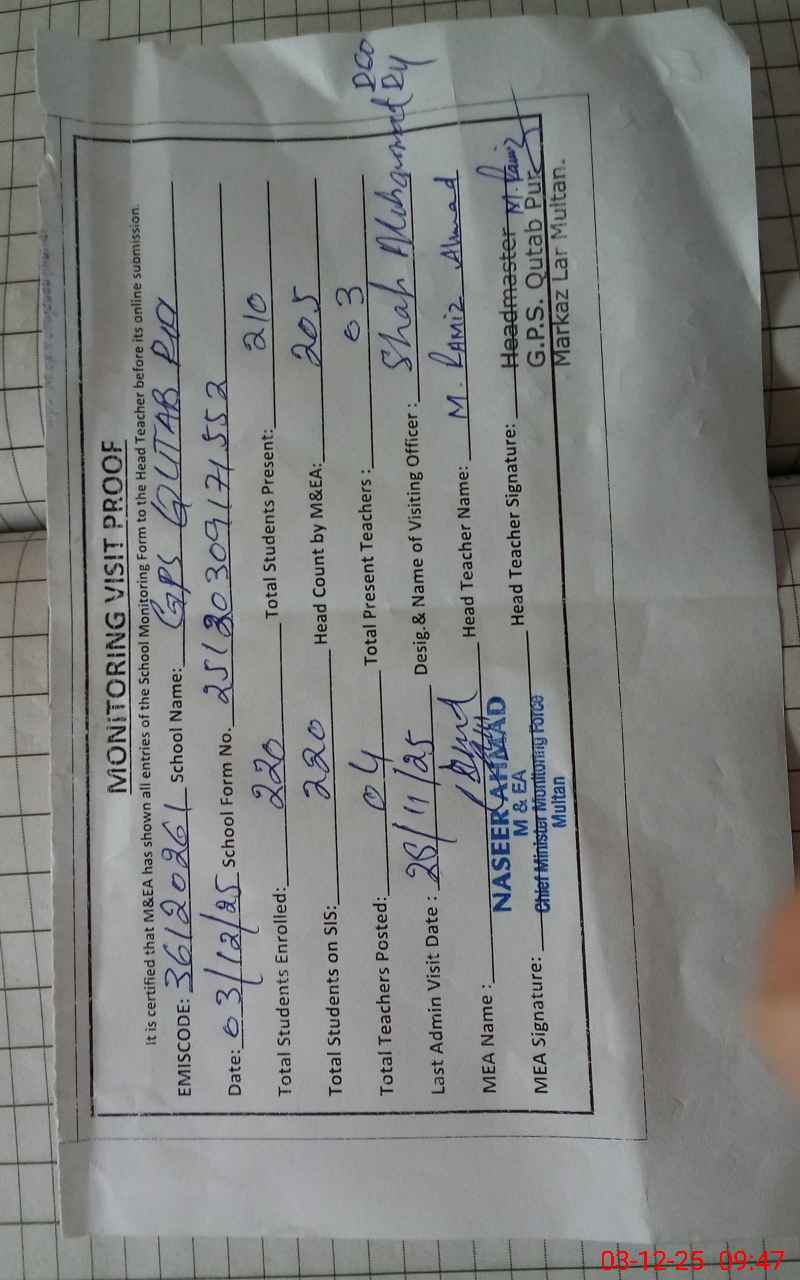 MONITORING VISIT PROOF
It is certified that M&EA has shown all entries of the School Monitoring Form to the Head Teacher before its online submission.
EMISCODE: 36120261 School Name: GPS QUTAB PUR
Date: 03/12/25 School Form No. 25120309171552
Total Students Enrolled: 220 Total Students Present: 210
Total Students on SIS: 220 Head Count by M&EA: 205
Total Teachers Posted: 04 Total Present Teachers : 03
Last Admin Visit Date : 28/11/25 Desig.& Name of Visiting Officer : Shah Muhammad
MEA Name : Head Teacher Name: M. RAMIZ Ahmad
NASEER AHMAD
M & EA
Chief Minister Monitoring Force
Multan
MEA Signature: Head Teacher Signature: M. Ramiz
Headmaster
G.P.S. Qutab Pur
Markaz Lar Multan.
03-12-25 09:47